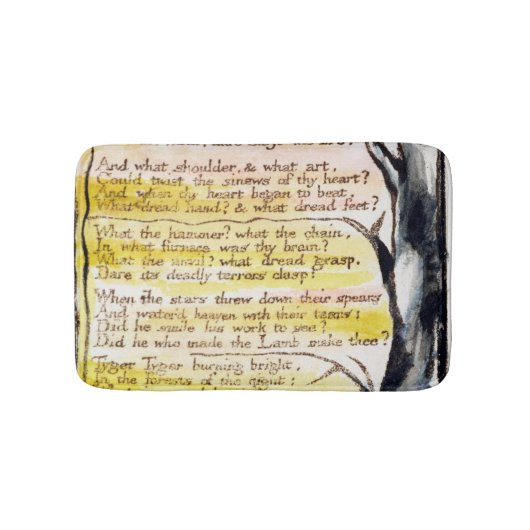 And what shoulder, & what art,
Could twist the sinews of thy heart?
And when thy heart began to beat,
What dread hand? & what dread feet?
What the hammer? what the chain,
In what furnace was thy brain?
What the anvil? what dread grasp.
Dare its deadly terrors clasp!
When the stars threw down their spears
And water'd heaven with their tears:
Did he smile his work to see?
Did he who made the Lamb make thee?
Tyger Tyger burning bright,
In the forests of the night: